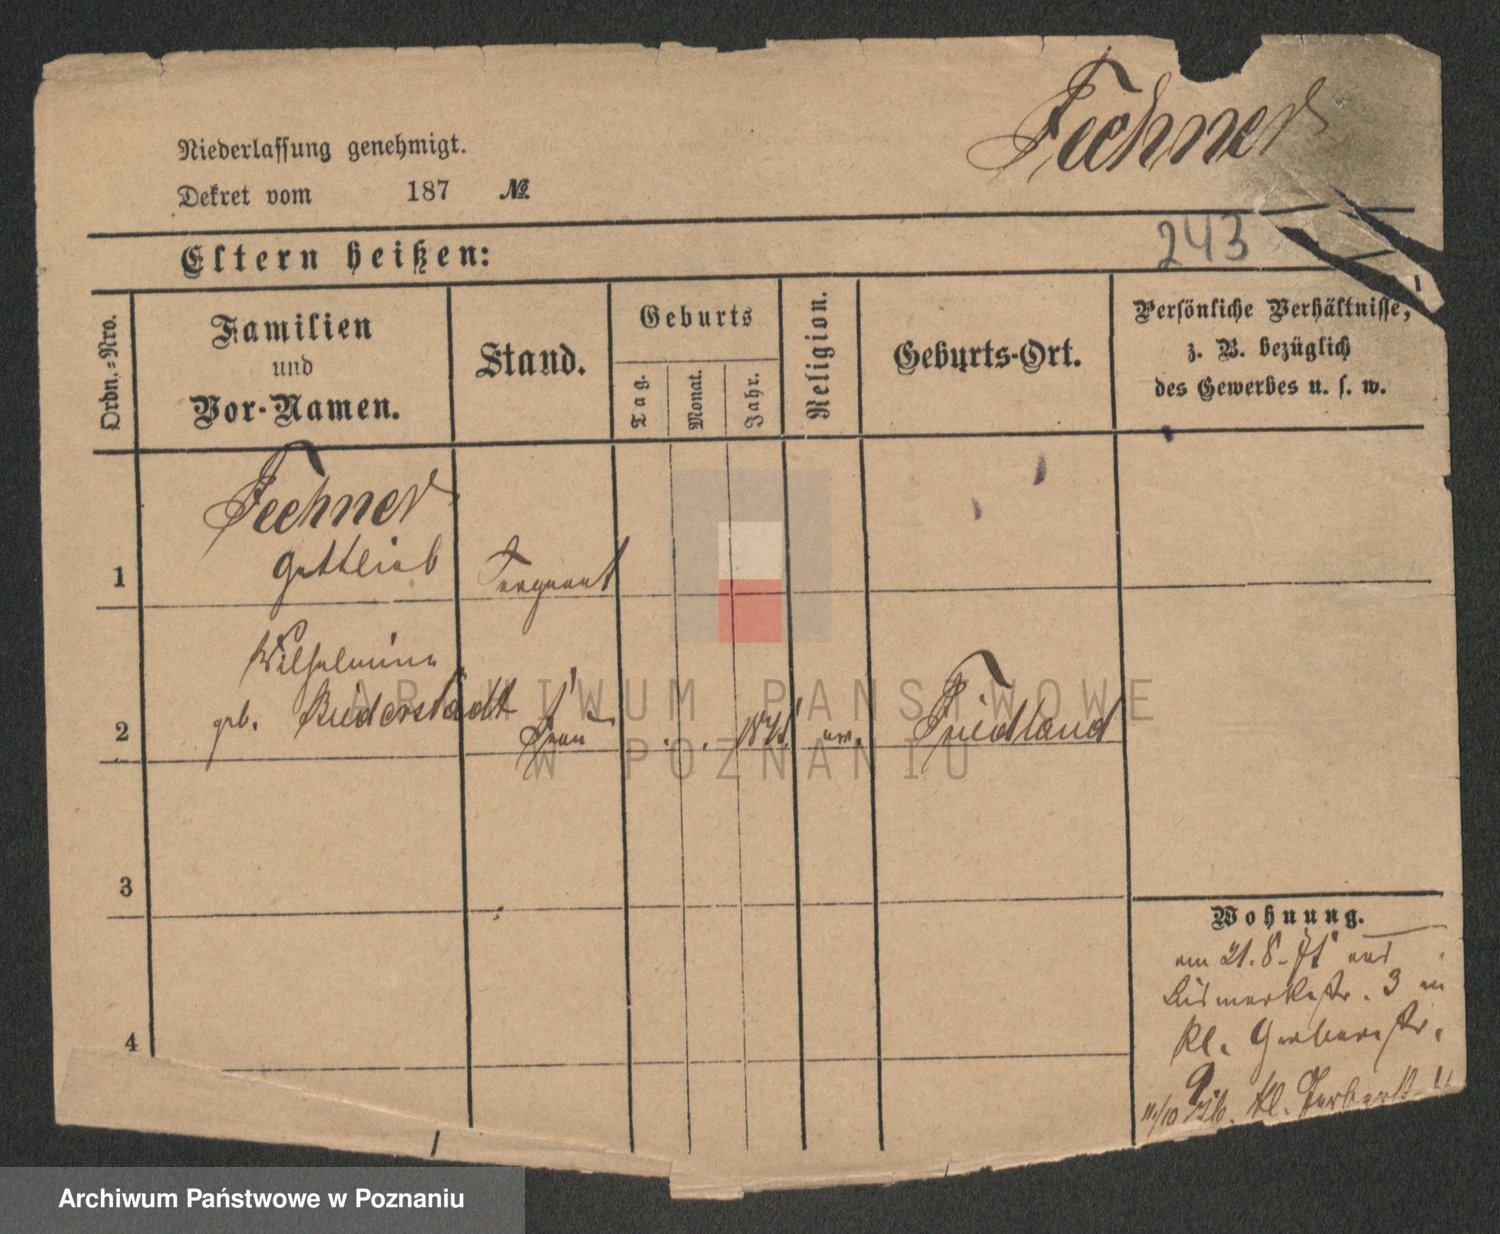 Fechner
Niederlassung genehmigt.
Dekret vom 187 №
243
Eltern heißen:
Ordn.-Nro.
Familien
und
Vor-Namen.
Stand.
Geburts
Tag.
Monat.
Jahr.
Religion.
Geburts-Ort.
Persönliche Verhältnisse,
z. B. bezüglich
des Gewerbes u. s. w.
Fechner
1 Gottlieb Sergeant
Wilhelmine
2 geb. Biederstädt Frau ev. Friedland
3
Wohnung.
am 21. 8. 75 aus
Bismarckstr. 3 in
Kl. Gerberstr.
4
9
11/10 76. Kl. Gerberst. 4
ARCHIWUM PAŃSTWOWE
W POZNANIU
Archiwum Państwowe w Poznaniu